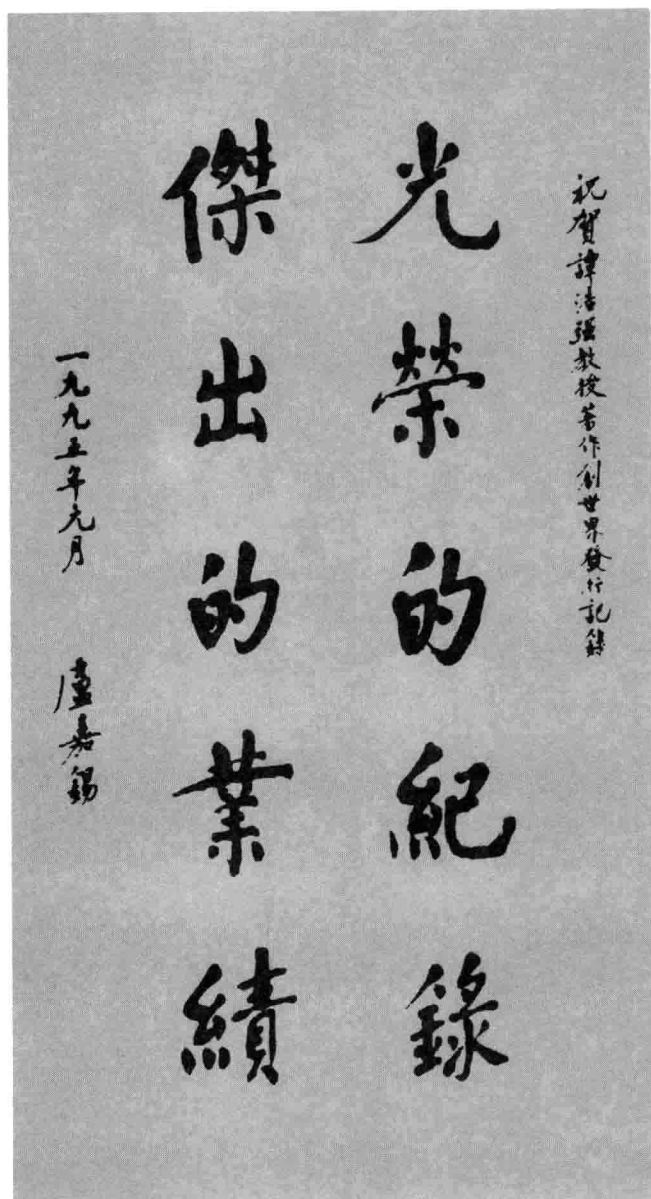 祝賀譚浩強教授著作創世界發行記錄
光榮的紀錄
傑出的業績
一九九五年元月
盧嘉錫